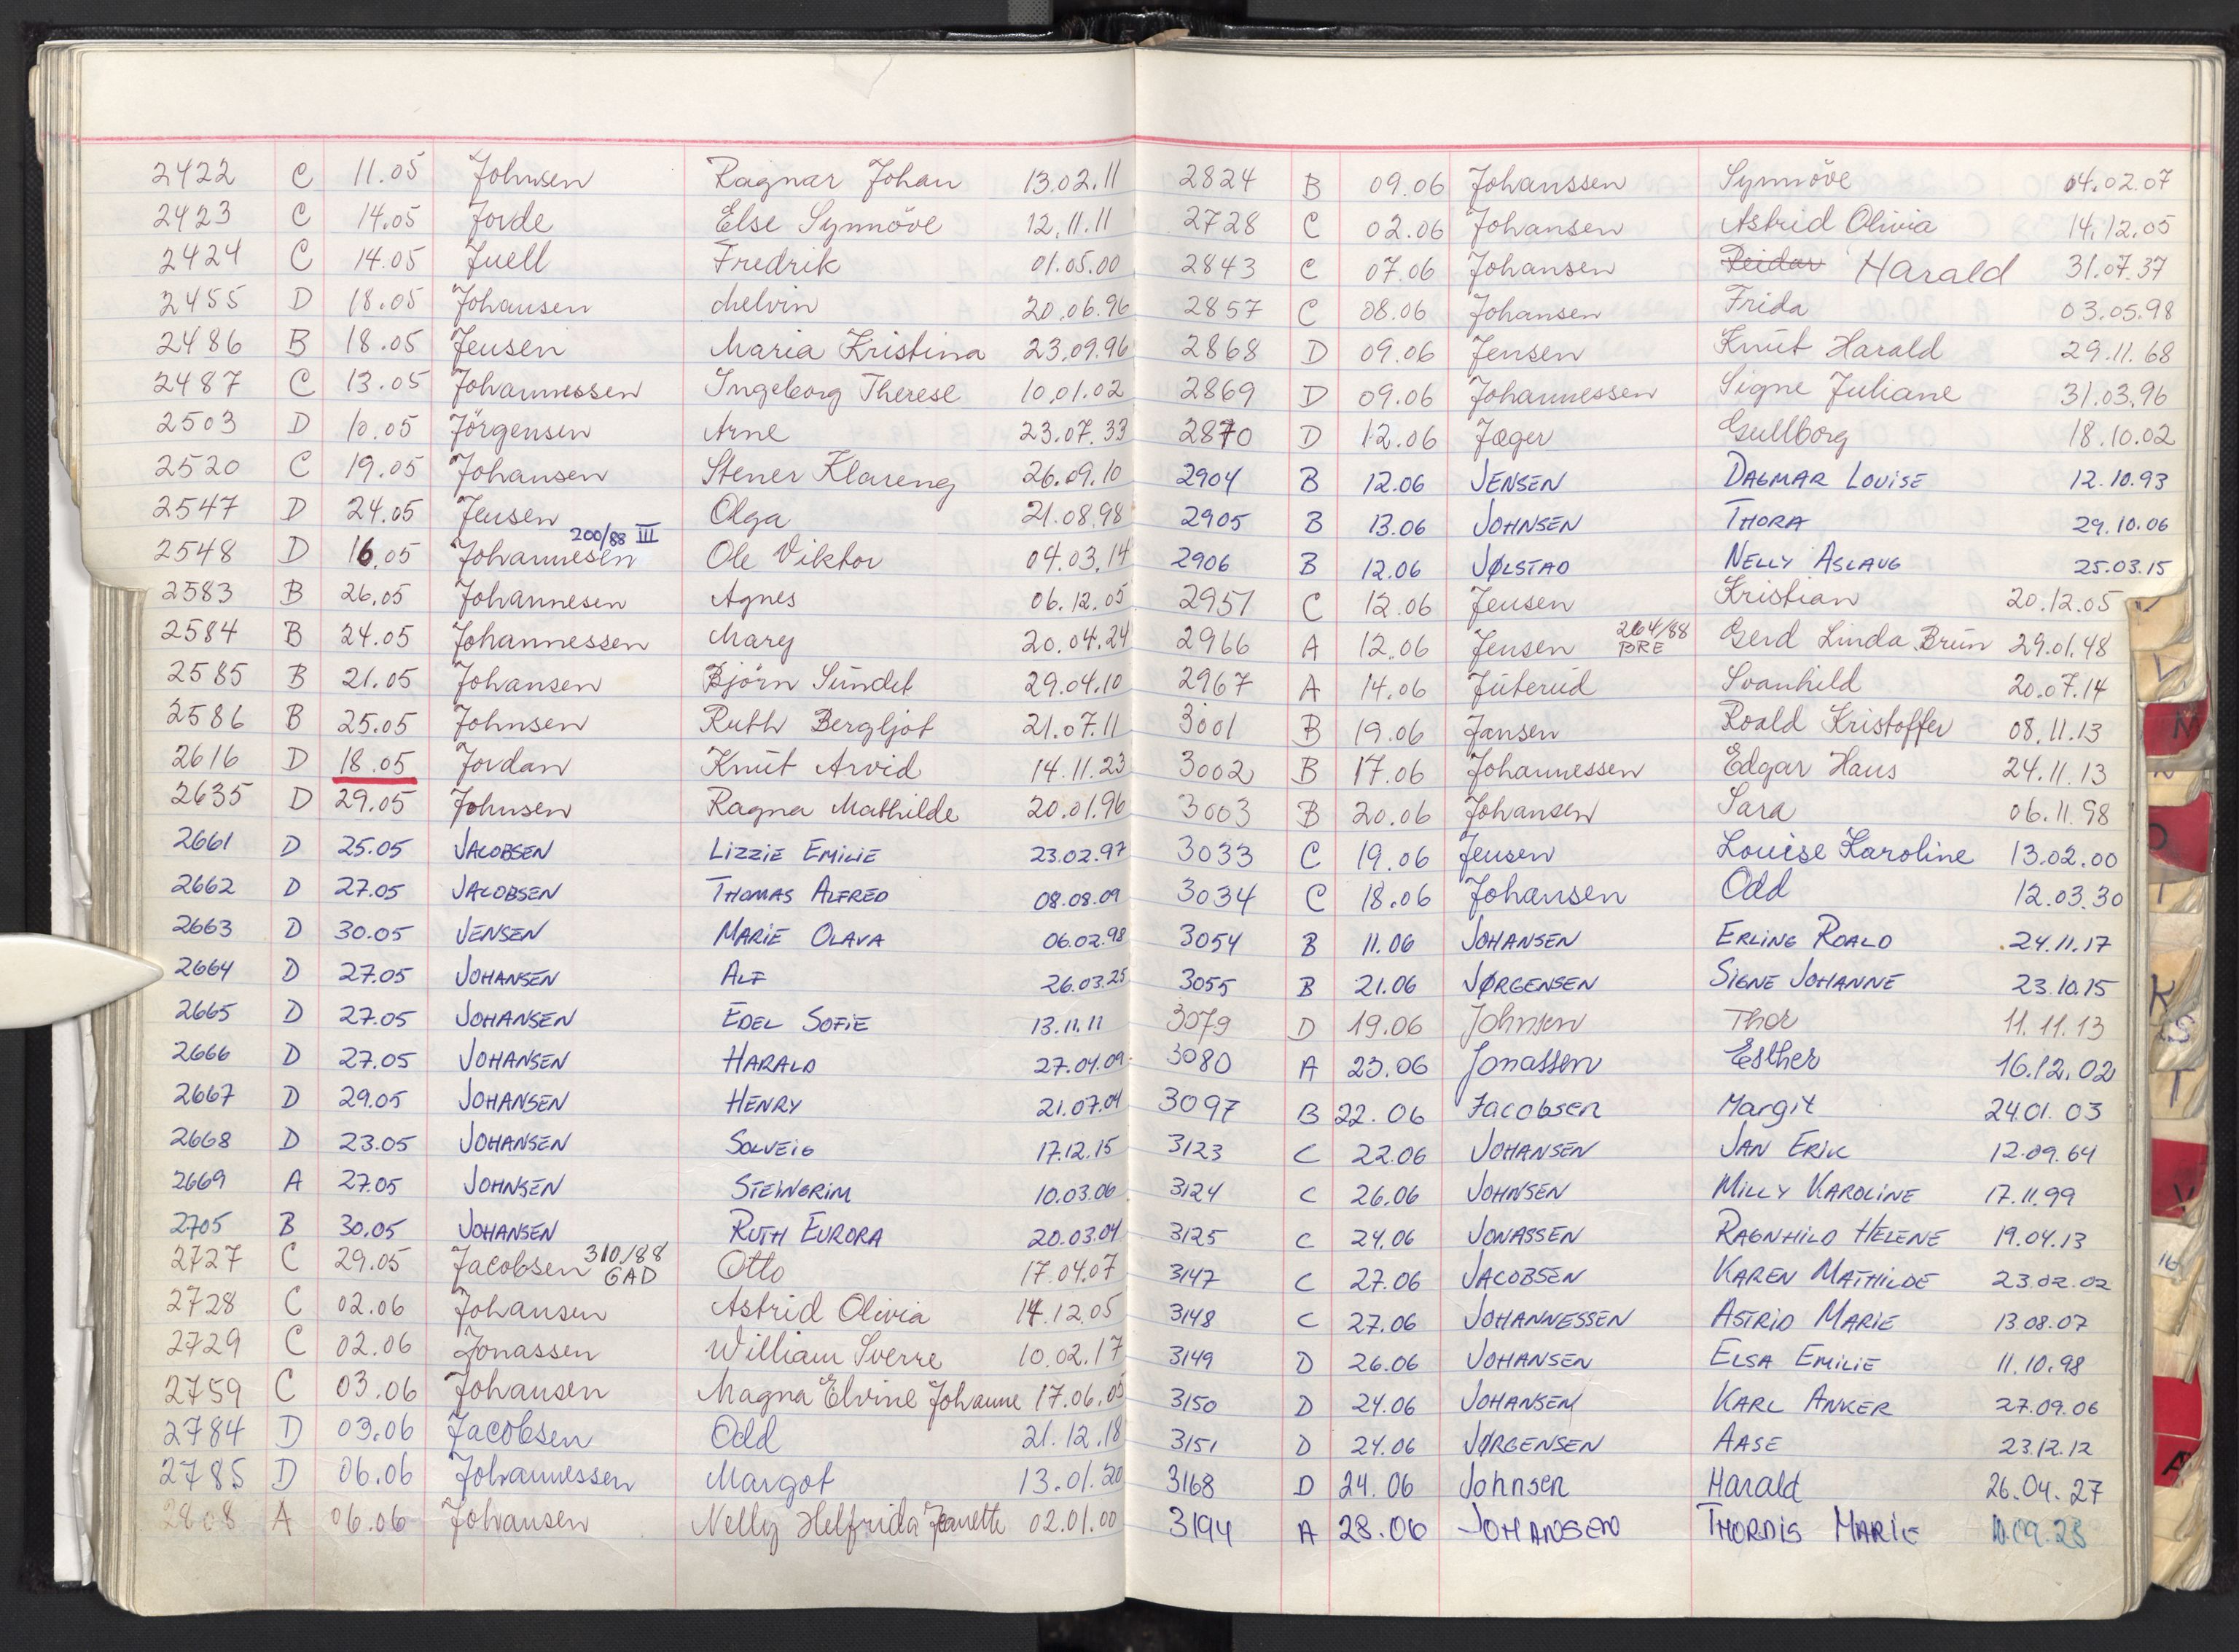 2422 C 11.05 Johnsen Ragnar Johan 13.02.11
2423 C 14.05 Jorde Else Synnöve 12.11.11
2424 C 14.05 Juell Fredrik 01.05.00
2455 D 18.05 Johansen Melvin 20.06.96
2486 B 18.05 Jensen Maria Kristina 23.09.96
2487 C 13.05 Johannessen Ingeborg Therese 10.01.02
2503 D 10.05 Jörgensen Arne 23.07.33
2520 C 19.05 Johansen Stener Klareng 26.09.10
2547 D 24.05 Jensen Olga 21.08.98
200/88 III
2548 D 16.05 Johannesen Ole Viktor 04.03.14
2583 B 26.05 Johannesen Agnes 06.12.05
2584 B 24.05 Johannessen Mary 20.04.24
2585 B 21.05 Johansen Björn Sundet 29.04.10
2586 B 25.05 Johnsen Ruth Bergljot 21.07.11
2616 D 18.05 Jordan Knut Arvid 14.11.23
2635 D 29.05 Johnsen Ragna Mathilde 20.01.96
2661 D 25.05 JACOBSEN LIZZIE EMILIE 23.02.97
2662 D 27.05 JACOBSEN THOMAS ALFRED 08.08.09
2663 D 30.05 JENSEN MARIE OLAVA 06.02.98
2664 D 27.05 JOHANSEN ALF 26.03.25
2665 D 27.05 JOHANSEN EDEL SOFIE 13.11.11
2666 D 27.05 JOHANSEN HARALD 27.04.09
2667 D 29.05 JOHANSEN HENRY 21.07.04
2668 D 23.05 JOHANSEN SOLVEIG 17.12.15
2669 A 27.05 JOHNSEN STEINGRIM 10.03.06
2705 B 30.05 JOHANSEN RUTH EURORA 20.03.04
2727 C 29.05 Jacobsen 310/88 GAD Otto 17.04.07
2728 C 02.06 Johansen Astrid Olivia 14.12.05
2729 C 02.06 Jonassen William Sverre 10.02.17
2759 C 03.06 Johansen Magna Elvine Johanne 17.06.05
2784 D 03.06 Jacobsen Odd 21.12.18
2785 D 06.06 Johannessen Margot 13.01.20
2808 A 06.06 Johansen Nelly Helfrida Jeanette 02.01.00
2824 B 09.06 Johanssen Synnöve 04.02.07
2728 C 02.06 Johansen Astrid Olivia 14.12.05
2843 C 07.06 Johansen Reidar Harald 31.07.37
2857 C 08.06 Johansen Frida 03.05.98
2868 D 09.06 Jensen Knut Harald 29.11.68
2869 D 09.06 Johannessen Signe Juliane 31.03.96
2870 D 12.06 Jæger Gullborg 18.10.02
2904 B 12.06 JENSEN DAGMAR LOUISE 12.10.93
2905 B 13.06 JOHNSEN THORA 29.10.06
2906 B 12.06 JØLSTAD NELLY ASLAUG 25.03.15
2951 C 12.06 Jensen Kristian 20.12.05
2966 A 12.06 Jensen 264/88 BRE Gerd Linda Brun 29.01.48
2967 A 14.06 Juterud Svanhild 20.07.14
3001 B 19.06 Jansen Roald Kristoffer 08.11.13
3002 B 17.06 Johannessen Edgar Hans 24.11.13
3003 B 20.06 Johansen Sara 06.11.98
3033 C 19.06 Jensen Louise Karoline 13.02.00
3034 C 18.06 Johansen Odd 12.03.30
3054 B 11.06 JOHANSEN ERLING ROALD 24.11.17
3055 B 21.06 JØRGENSEN SIGNE JOHANNE 23.10.15
3079 D 19.06 Johnsen Thor 11.11.13
3080 A 23.06 Jonassen Esther 16.12.02
3097 B 22.06 Jacobsen Margit 24.01.03
3123 C 22.06 JOHANSEN JAN ERIK 12.09.64
3124 C 26.06 JOHNSEN MILLY KAROLINE 17.11.99
3125 C 24.06 JONASSEN RAGNHILD HELENE 19.04.13
3147 C 27.06 JACOBSEN KAREN MATHILDE 23.02.02
3148 C 27.06 JOHANNESSEN ASTRID MARIE 13.08.07
3149 D 26.06 JOHANSEN ELSA EMILIE 11.10.98
3150 D 24.06 JOHANSEN KARL ANKER 27.09.06
3151 D 24.06 JØRGENSEN AASE 23.12.12
3168 D 24.06 Johnsen Harald 26.04.27
3194 A 28.06 JOHANSEN THORDIS MARIE